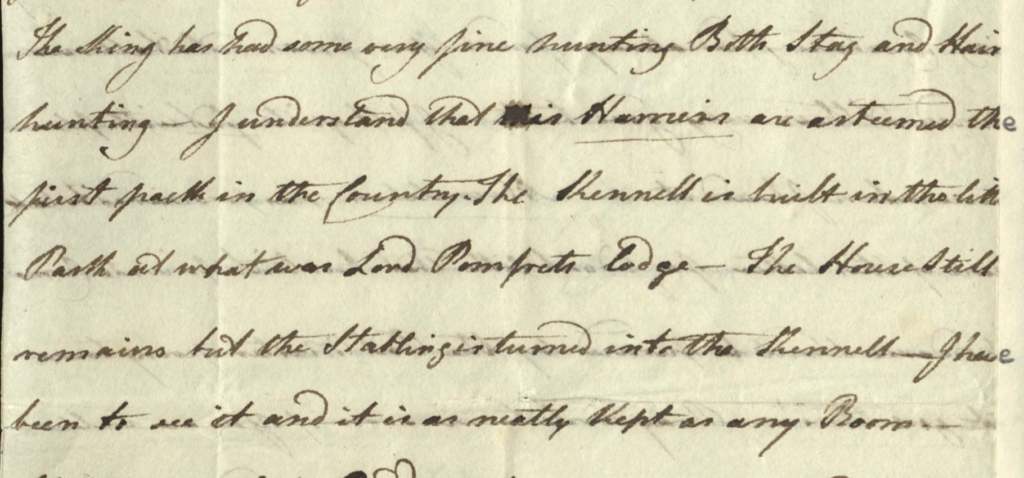 The King has had some very fine hunting Both Stag and Hair
hunting – I understand that his Harriers are asteemed the
first pack in the Country. The Kennell is built in the litt
Park at what was Lord Pomfrets Lodge – The House Still
remains but the Stabling is turned into the Kennell – I have
been to see it and it is as neatly Kept as any Room –